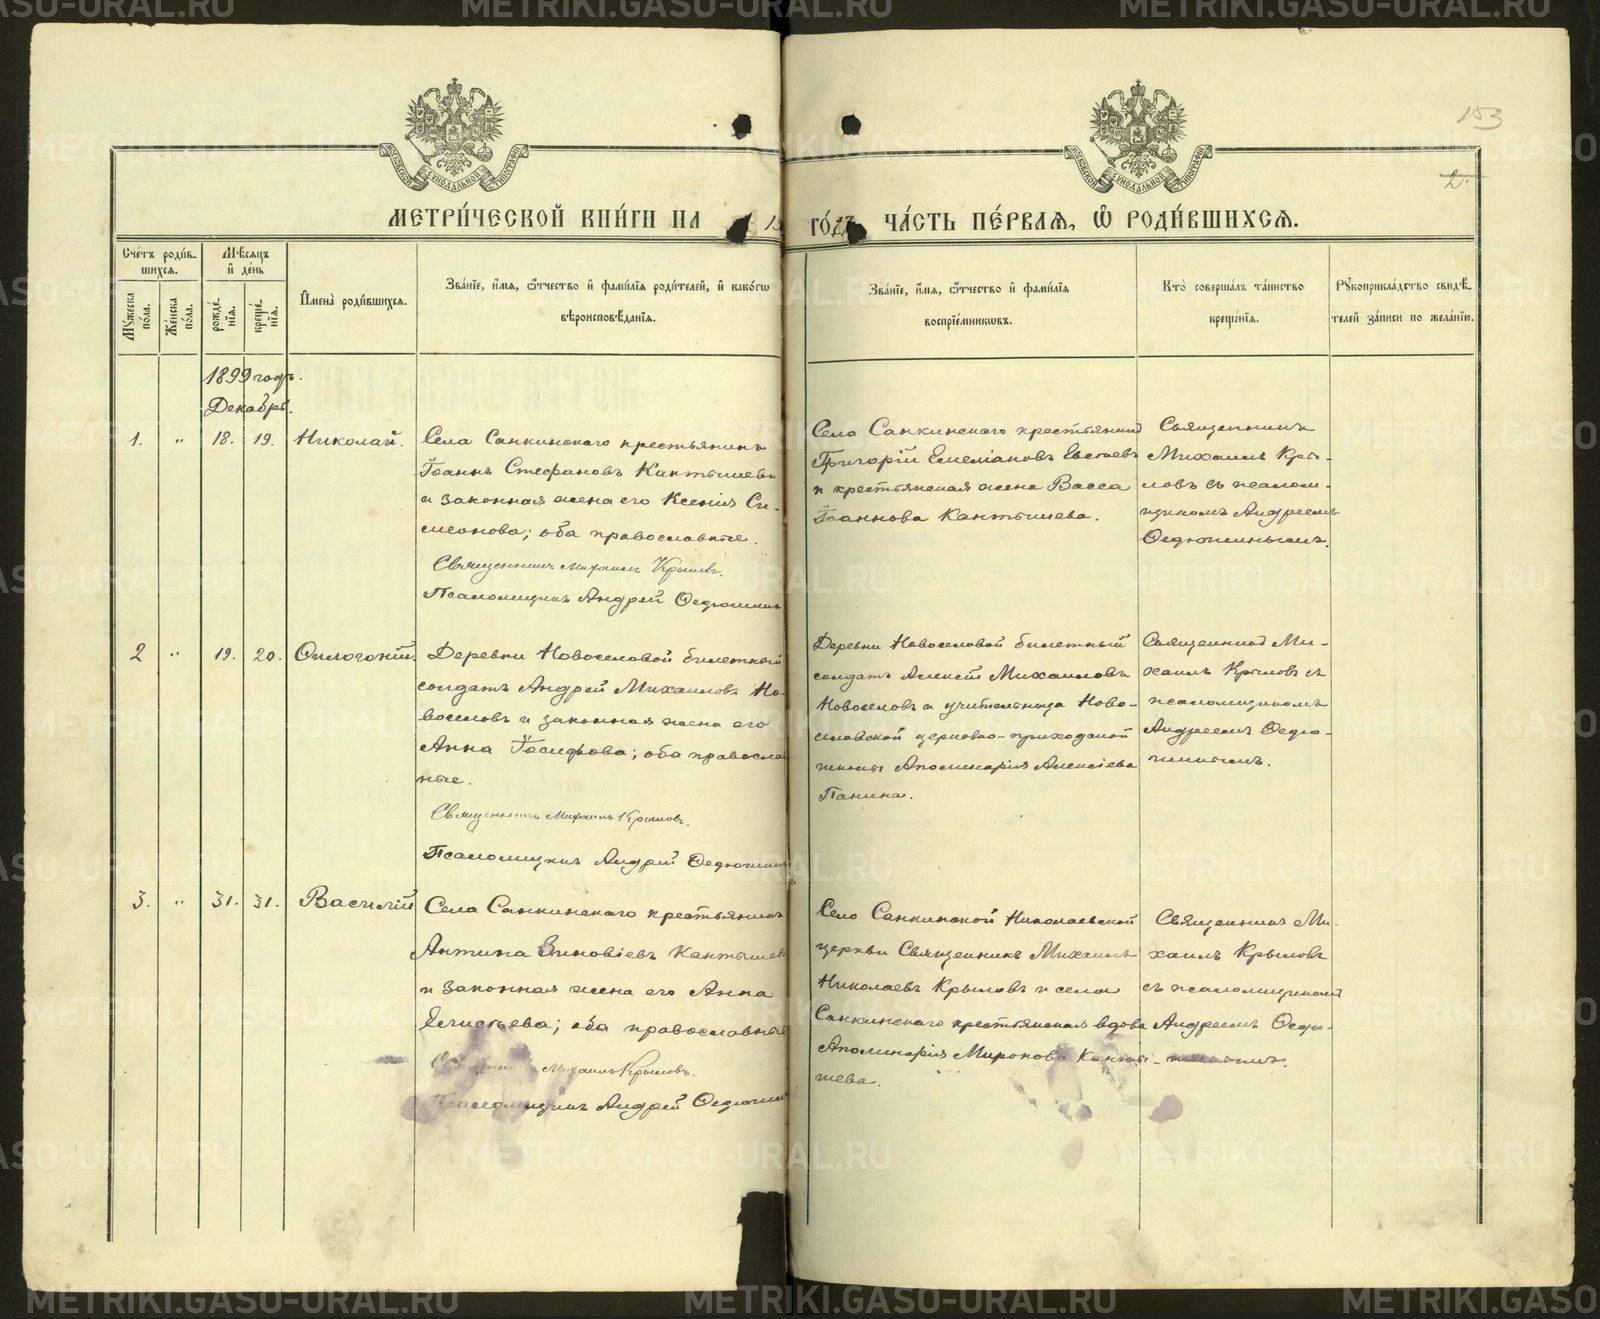 153
2.
МОСКОВСКОЙ СУНОДАЛЬНОЙ ТИПОГРАФІИ
МОСКОВСКОЙ СУНОДАЛЬНОЙ ТИПОГРАФІИ
МЕТРИ́ЧЕСКОЙ КНИ́ГИ НА
ГО́ДЪ ЧА́СТЬ ПЕ́РВАЯ, Ѽ РОДИ́ВШИХСЯ.
Сче́тъ роди́в-
шихся.
Му́жеска по́ла.
Же́нска по́ла.
Мѣ́сяцъ и҆ де́нь
рожде́-
нїя.
креще́-
нїя.
И҆мена̀ роди́вшихся.
Зва́нїе, и҆́мя, ѻ҆́тчество и҆ фами́лїя роди́телей, и҆ како́гѡ
вѣроисповѣ́данїя.
Зва́нїе, и҆́мя, ѻ҆́тчество и҆ фами́лїя
воспрїе́мникѡвъ.
Кто̀ соверша́лъ та́инство
креще́нїя.
Рꙋкоприкла́дство свидѣ́-
телей за́писи по жела́нїю.
1899 годъ.
Декабрь.
1. " 18. 19. Николай.
Села Санкинскаго крестьянинъ
Іоаннъ Стефановъ Кантышевъ
и законная жена его Ксенія Си-
меонова; оба православные.
Священникъ Михаилъ Крыловъ.
Псаломщикъ Андрей Ѳедюшинъ
Села Санкинскаго крестьянинъ
Григорій Емеліановъ Евсѣевъ
и крестьянская жена Васса
Іоаннова Кантышева.
Священникъ
Михаилъ Кры-
ловъ съ псалом-
щикомъ Андреемъ
Ѳедюшинымъ.
2 " 19. 20. Филогоній.
Деревни Новоселовой билетный
солдатъ Андрей Михаиловъ Но-
воселовъ и законная жена его
Анна Іосифова; оба православ-
ные.
Священникъ Михаилъ Крыловъ.
Псаломщикъ Андрей Ѳедюшинъ
Деревни Новоселовой билетный
солдатъ Алексій Михаиловъ
Новоселовъ и учительница Ново-
селовской церковно-приходской
школы Аполинарія Алексіева
Панина.
Священникъ Ми-
хаилъ Крыловъ съ
псаломщикомъ
Андреемъ Ѳедю-
шинымъ.
3. " 31. 31. Василій
Села Санкинскаго крестьянинъ
Антипа Зиновіевъ Кантышевъ
и законная жена его Анна
Евгистьева; оба православные
Священникъ Михаилъ Крыловъ.
Псаломщикъ Андрей Ѳедюшинъ
Села Санкинской Николаевской
церкви Священникъ Михаилъ
Николаевъ Крыловъ и села
Санкинскаго крестьянская вдова
Аполинарія Миронова Канты-
шева.
Священникъ Ми-
хаилъ Крыловъ
съ псаломщикомъ
Андреемъ Ѳедю-
шинымъ.
METRIKI.GASO-URAL.RU